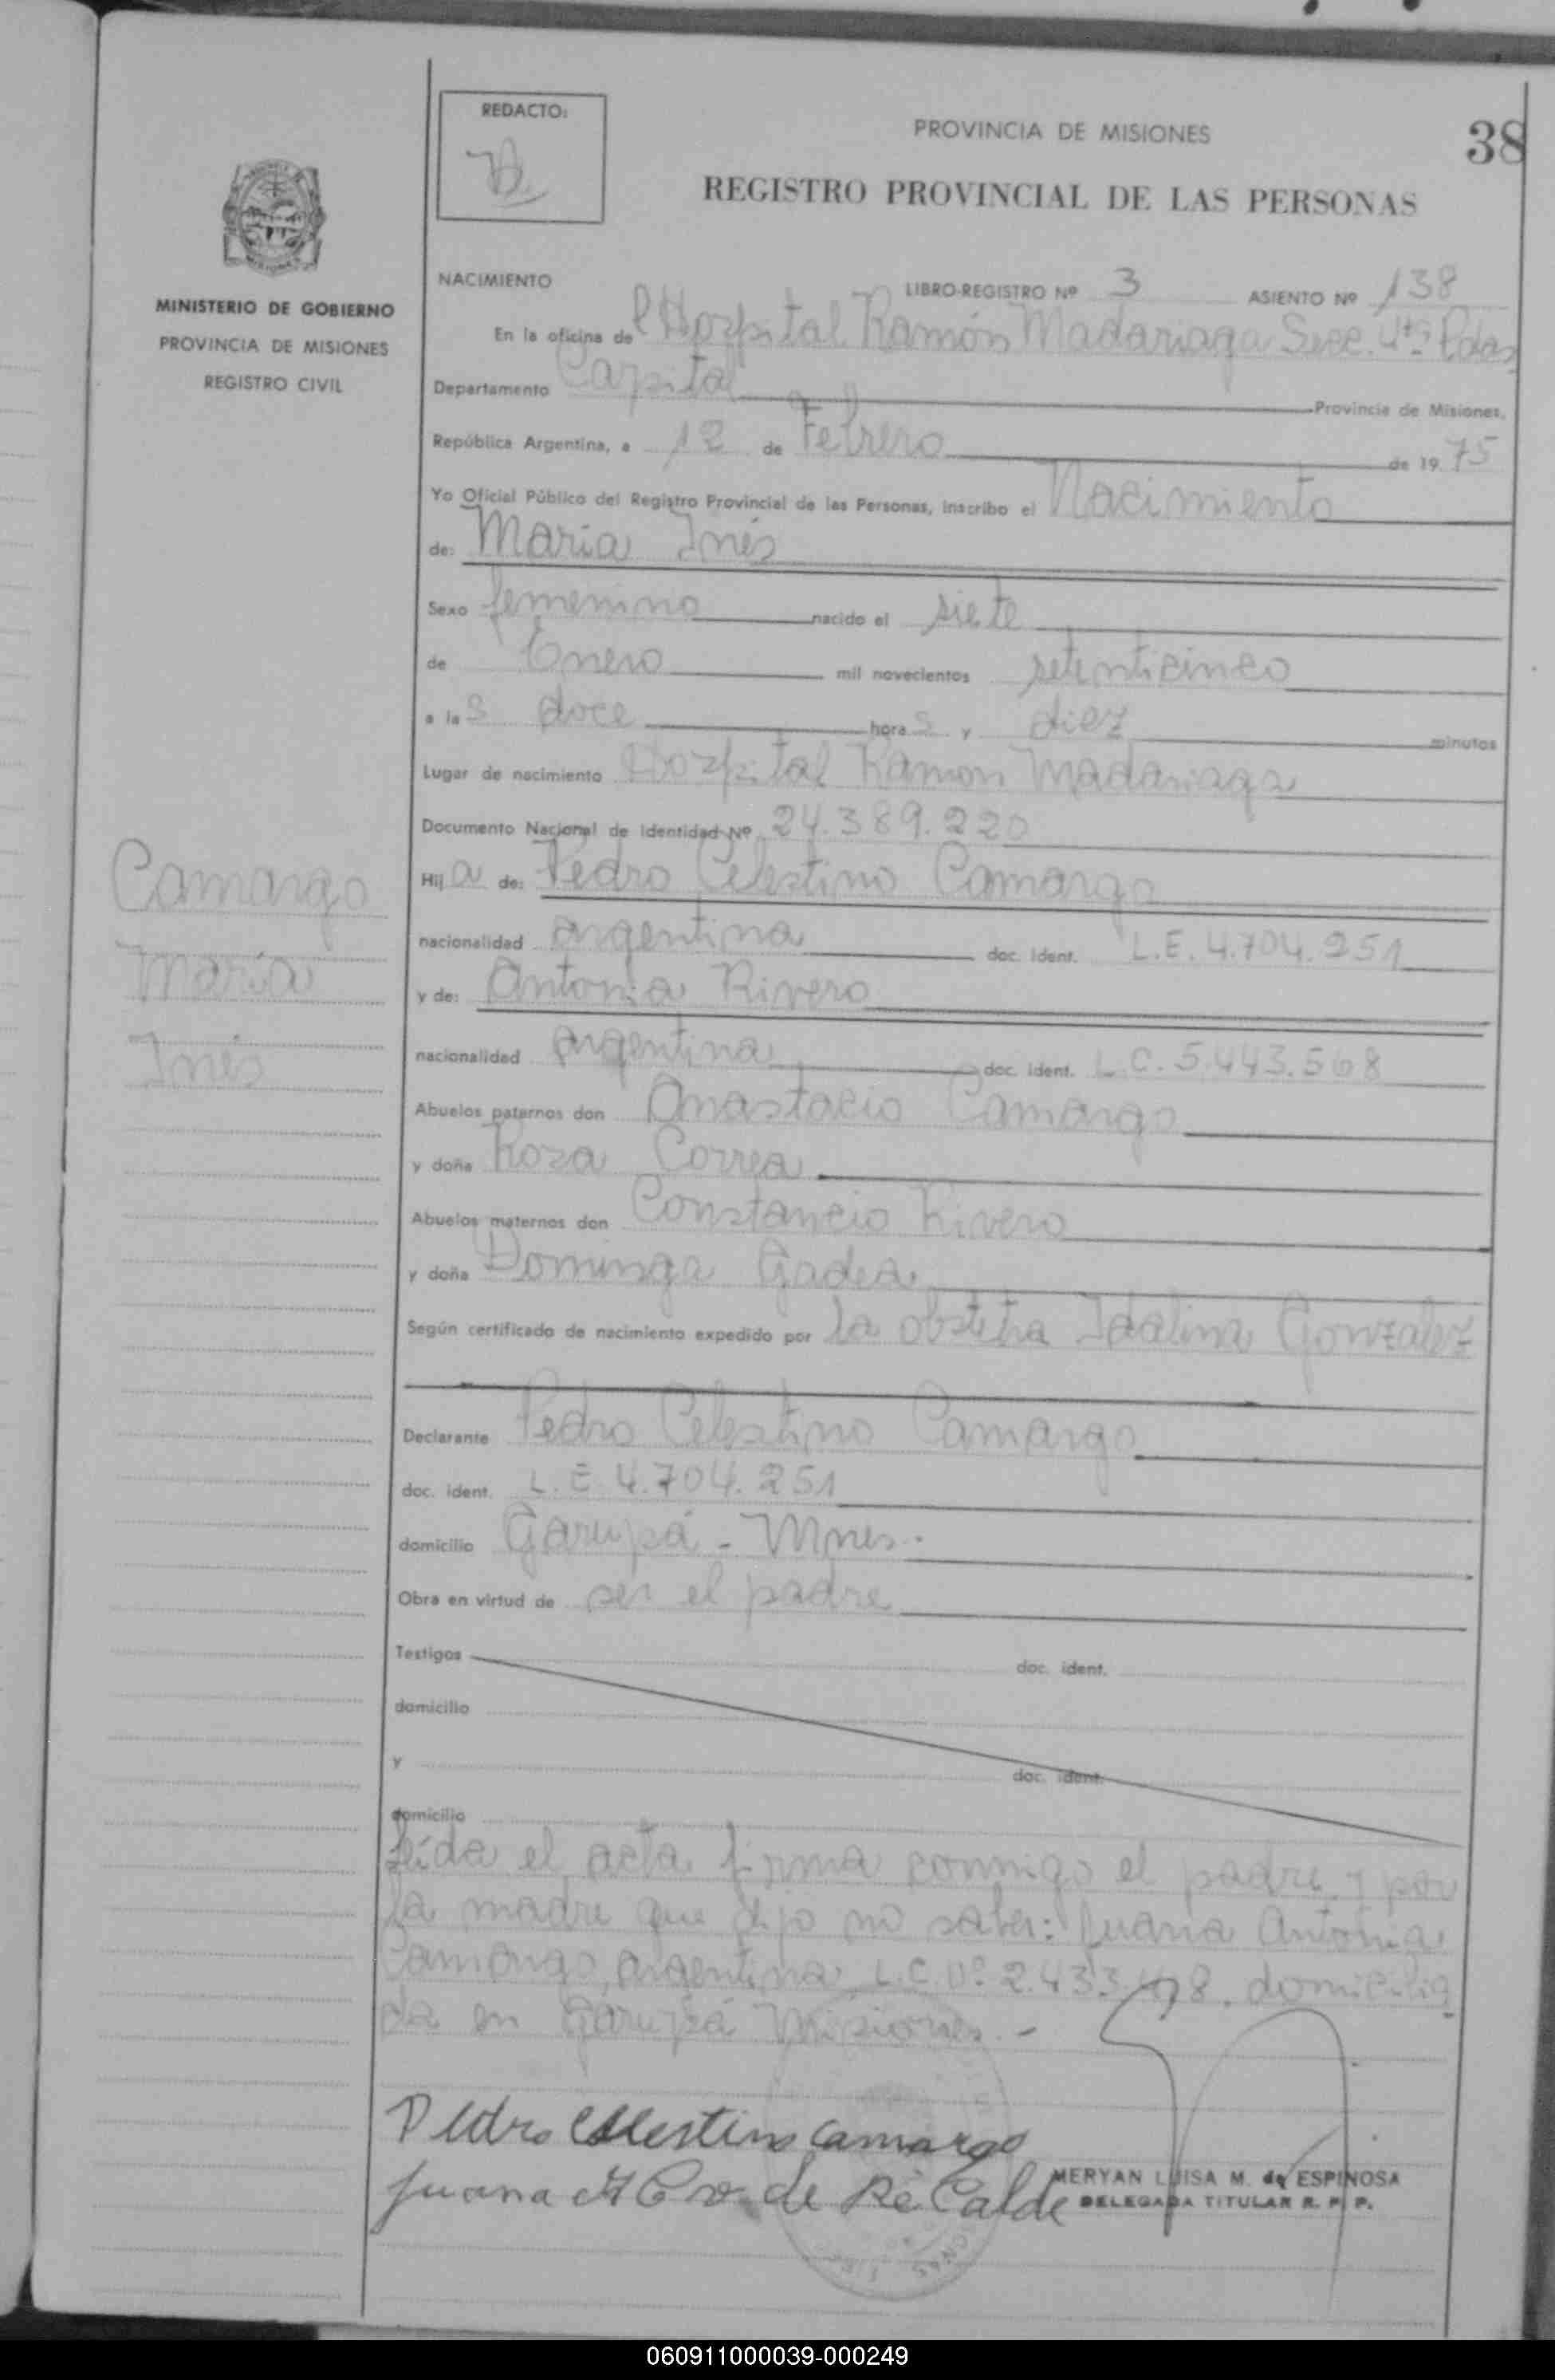 REDACTO:
PROVINCIA DE MISIONES
38
REGISTRO PROVINCIAL DE LAS PERSONAS
MINISTERIO DE GOBIERNO
PROVINCIA DE MISIONES
REGISTRO CIVIL
NACIMIENTO
LIBRO-REGISTRO Nº 3 ASIENTO Nº 138
En la oficina del Hospital Ramón Madariaga Secc. 4ta Pdas
Departamento Capital Provincia de Misiones,
República Argentina, a 12 de Febrero de 1975
Yo Oficial Público del Registro Provincial de las Personas, inscribo el Nacimiento
de: María Inés
Sexo femenino nacido el siete
de Enero mil novecientos setenticinco
a las doce horas y diez minutos
Lugar de nacimiento Hospital Ramon Madariaga
Documento Nacional de Identidad Nº 24.389.220
Hija de: Pedro Celestino Camargo
nacionalidad argentina doc. ident. L.E. 4.704.251
y de: Antonia Rivero
nacionalidad argentina doc. ident. L.C. 5.443.568
Abuelos paternos don Anastacio Camargo
y doña Rosa Correa
Abuelos maternos don Constancio Rivero
y doña Dominga Gadea
Según certificado de nacimiento expedido por la obstetra Idalina Gonzalez
Declarante Pedro Celestino Camargo
doc. ident. L.E. 4.704.251
domicilio Garupá - Mnes.
Obra en virtud de ser el padre
Testigos doc. ident.
domicilio
y doc. ident.
domicilio
Leída el acta firma conmigo el padre y por
la madre que dijo no saber: Juana Antonia
Camargo, argentina, L.C. Nº 2.433. domicilia
da en Garupá Misiones.-
Camargo
María
Inés
Pedro Celestino Camargo
Juana A C v. de ReCalde
MERYAN LUISA M. de ESPINOSA
DELEGADA TITULAR R. P. P.
060911000039-000249